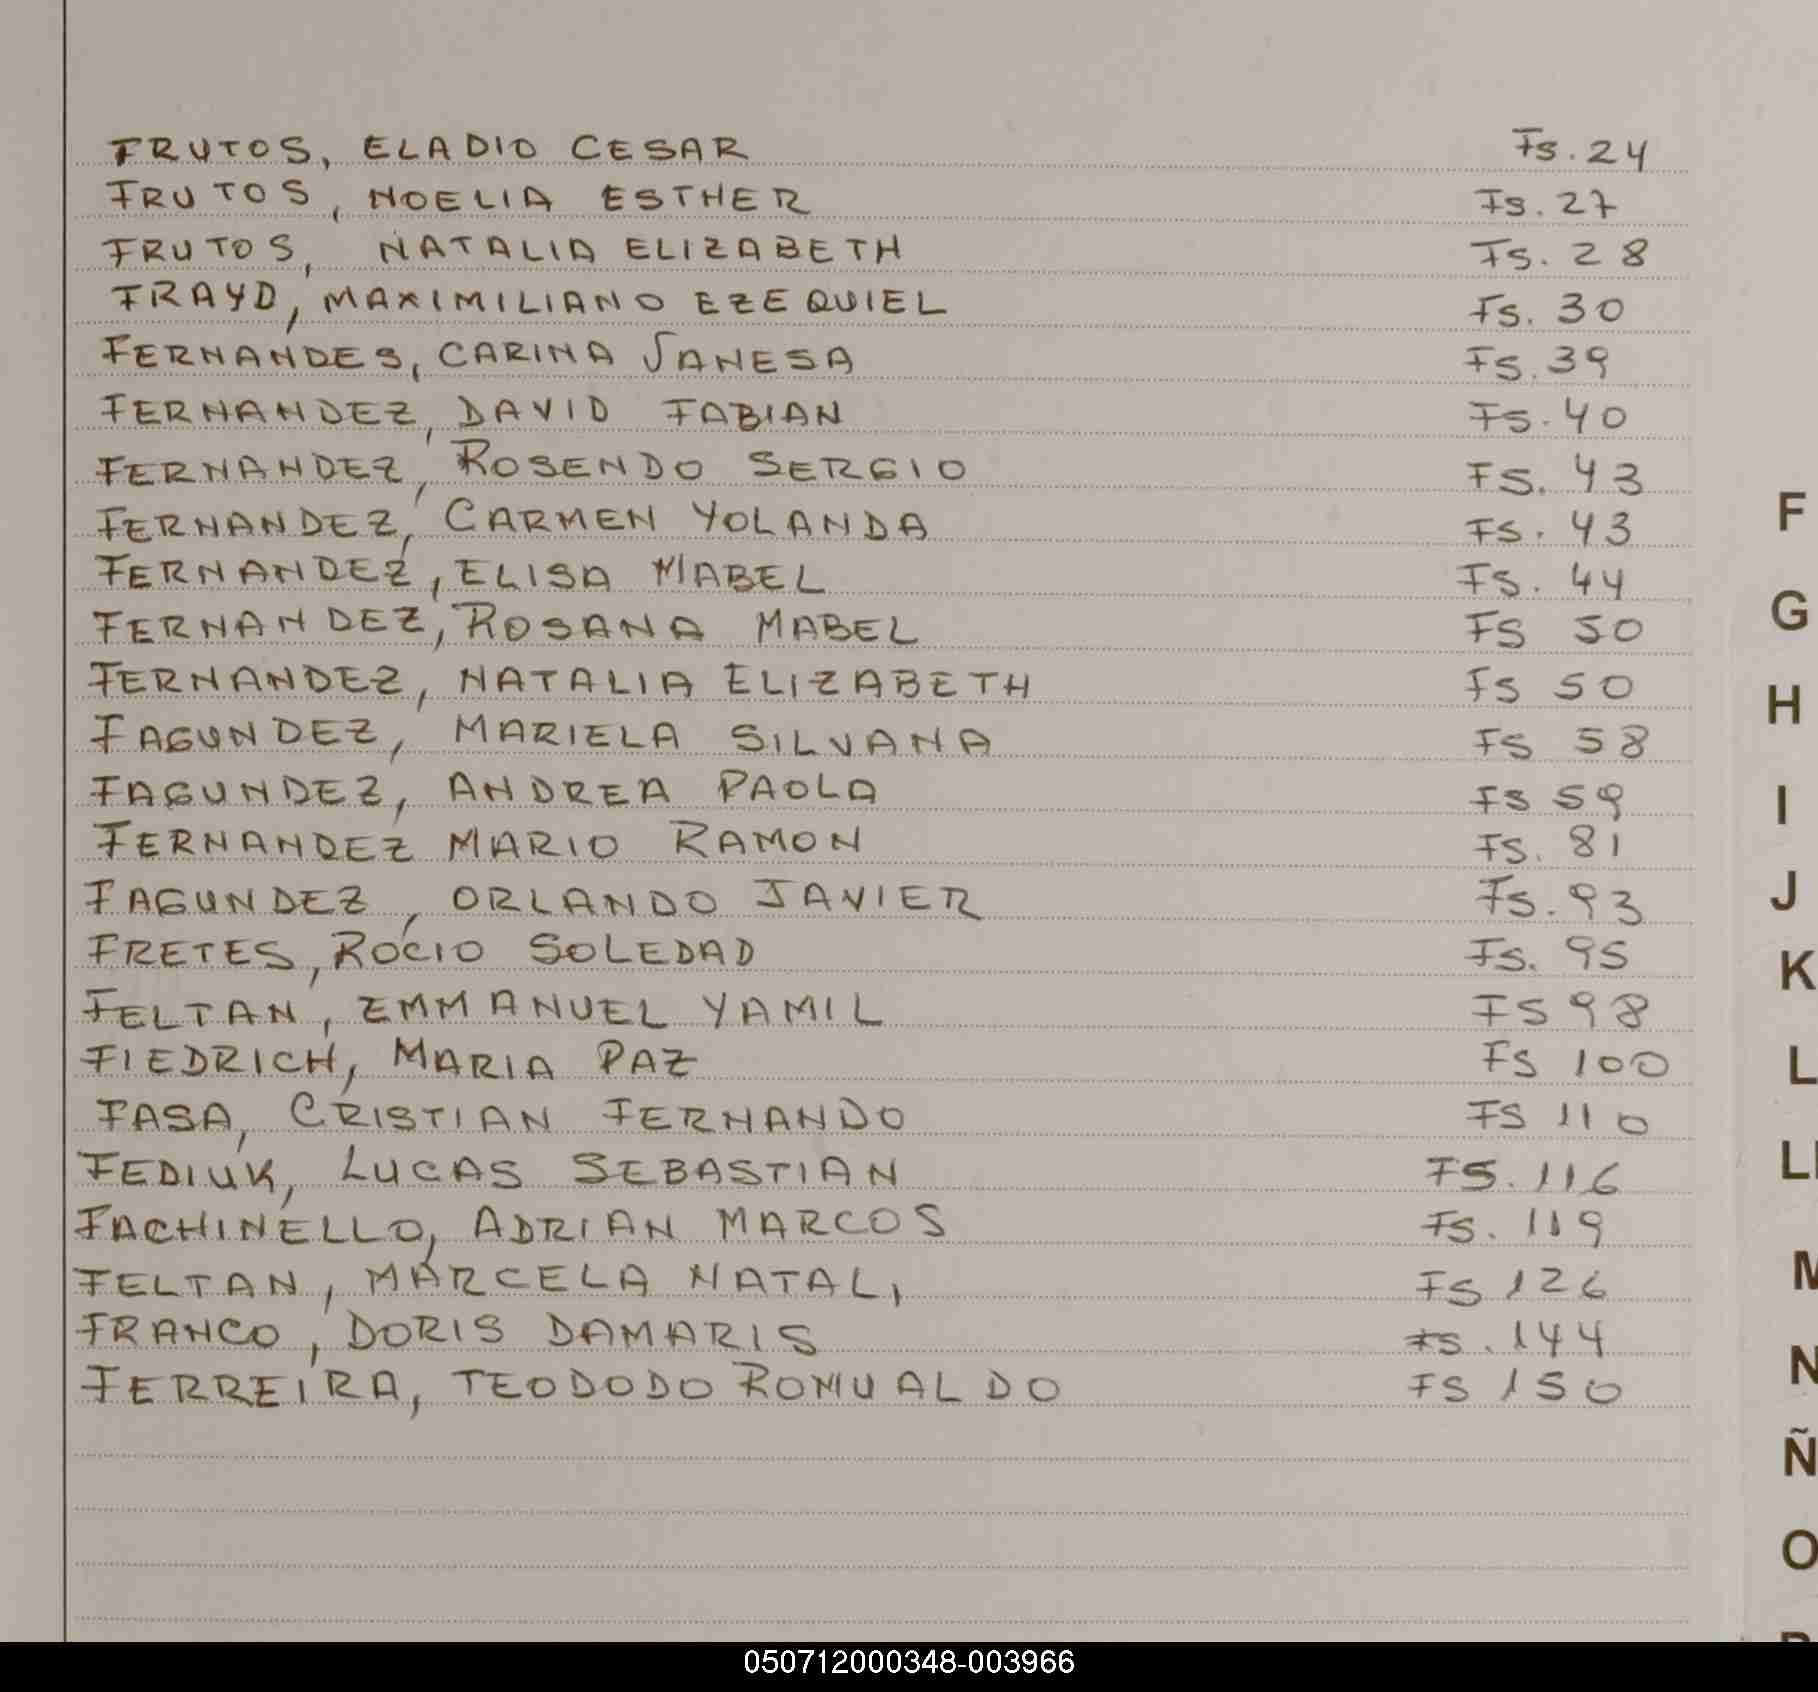 FRUTOS, ELADIO CESAR Fs. 24
FRUTOS, NOELIA ESTHER Fs. 27
FRUTOS, NATALIA ELIZABETH Fs. 28
FRAYD, MAXIMILIANO EZEQUIEL Fs. 30
FERNANDES, CARINA JANESA Fs. 39
FERNANDEZ, DAVID FABIAN Fs. 40
FERNANDEZ, ROSENDO SERGIO FS. 43
FERNANDEZ, CARMEN YOLANDA FS. 43
FERNANDEZ, ELISA MABEL FS. 44
FERNANDEZ, ROSANA MABEL FS 50
FERNANDEZ, NATALIA ELIZABETH FS 50
FAGUNDEZ, MARIELA SILVANA FS 58
FAGUNDEZ, ANDREA PAOLA FS 59
FERNANDEZ MARIO RAMON FS. 81
FAGUNDEZ, ORLANDO JAVIER Fs. 93
FRETES, ROCIO SOLEDAD Fs. 95
FELTAN, EMMANUEL YAMIL FS 98
FIEDRICH, MARIA PAZ FS 100
FASA, CRISTIAN FERNANDO FS 110
FEDIUK, LUCAS SEBASTIAN FS. 116
FACHINELLO, ADRIAN MARCOS Fs. 119
FELTAN, MARCELA NATALI FS 126
FRANCO, DORIS DAMARIS Fs. 144
FERREIRA, TEODODO ROMUALDO FS 150
F
G
H
I
J
K
L
LL
M
N
Ñ
O
050712000348-003966